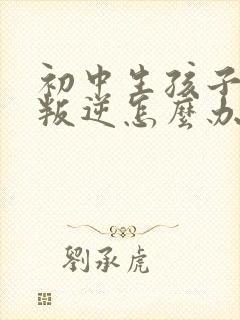 初中生孩子
叛逆怎麼办
劉承虎